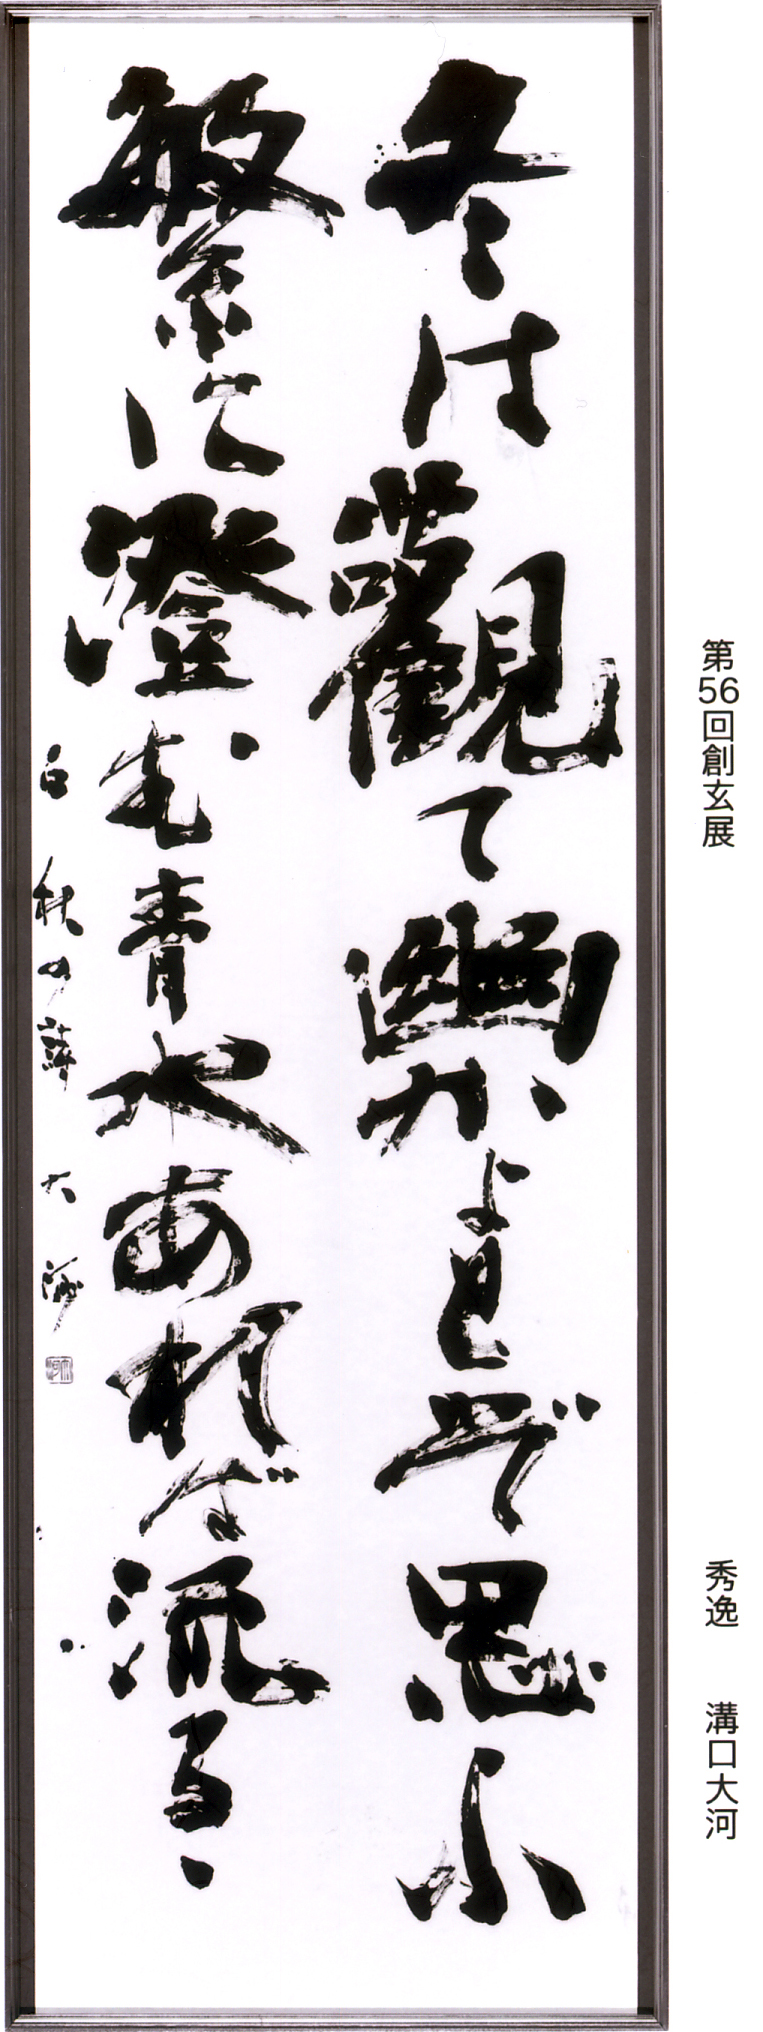 冬は觀て幽かよしとぞ思ふ
繁に澄む青水あれば流る
白秋の詩 大河
第56回創玄展
秀逸 溝口大河